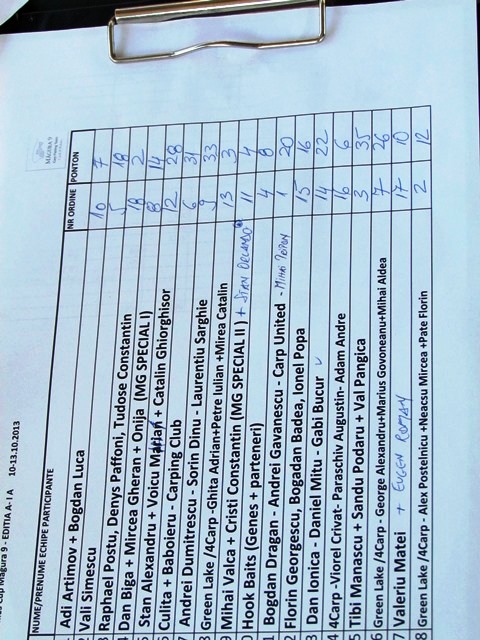 Cup Magura 9 - EDITIA A- I A 10-13.10.2013
MAGURA 9
NUME/PRENUME ECHIPE PARTICIPANTE NR ORDINE PONTON
Adi Artimov + Bogdan Luca 10 7
Vali Simescu 5 18
3 Raphael Postu, Denys Paffoni, Tudose Constantin 18 2
4 Dan Biga + Mircea Gheran + Onija (MG SPECIAL I) 8 14
5 Stan Alexandru + Voicu Marian + Catalin Ghiorghisor 12 28
6 Culita + Baboieru - Carping Club 6 31
7 Andrei Dumitrescu - Sorin Dinu - Laurentiu Sarghie 9 33
8 Green Lake /4Carp -Ghita Adrian+Petre Iulian +Mirea Catalin 13 3
9 Mihai Valca + Cristi Constantin (MG SPECIAL II ) + STAN ORLANDO 11 4
0 Hook Baits (Genes + parteneri) 4 8
1 Bogdan Dragan - Andrei Gavanescu - Carp United - MIHAI POPON 1 20
2 Florin Georgescu, Bogadan Badea, Ionel Popa 15 16
3 Dan Ionica - Daniel Mitu - Gabi Bucur 14 22
4 4Carp -Viorel Crivat- Paraschiv Augustin- Adam Andre 16 6
5 Tibi Manascu + Sandu Podaru + Val Pangica 3 35
6 Green Lake /4Carp - George Alexandru+Marius Govoneanu+Mihai Aldea 7 26
7 Valeriu Matei + EUGEN ROMAN 17 10
Green Lake /4Carp - Alex Postelnicu +Neacsu Mircea +Pate Florin 2 12